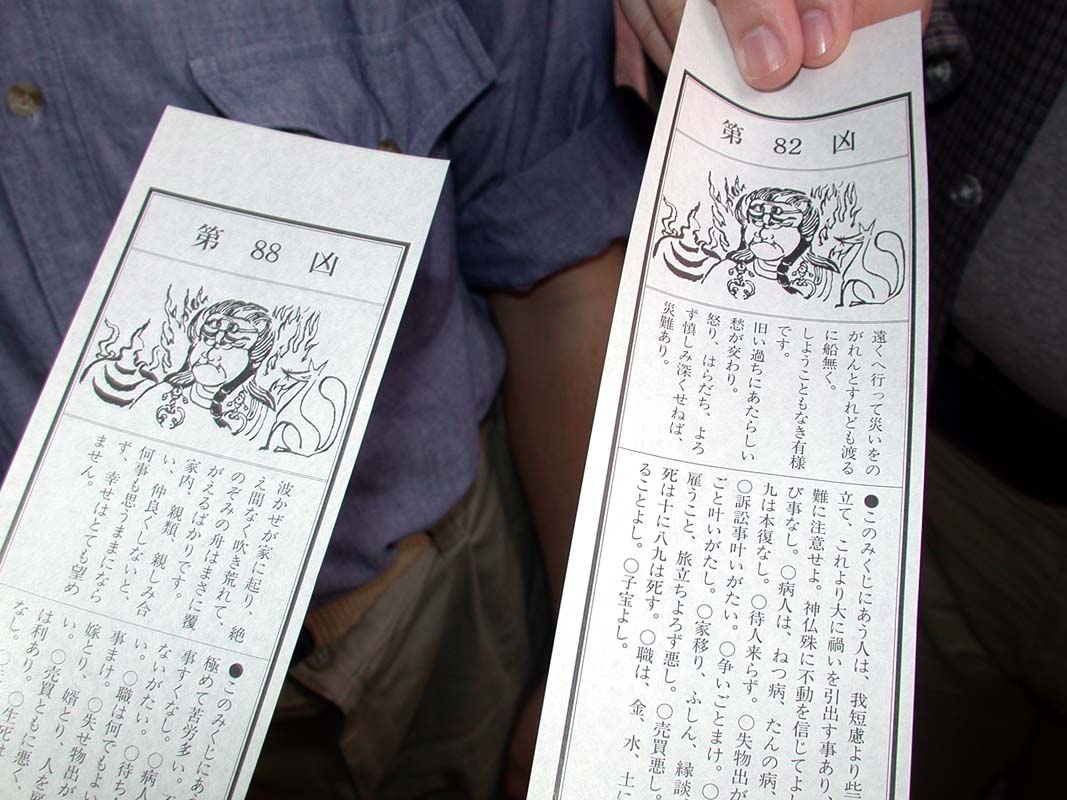 第 88 凶
波かぜが家に起り、絶
え間なく吹き荒れて、
のぞみの舟はまさに覆
がえるばかりです。
家内、親類、親しみ合
い、仲良くしないと、
何事も思うままになら
ず、幸せはとても望め
ません。
●このみくじにあ
極めて苦労多い。
事すくなし。
ないがたい。○病人
い。○職は何でもよい
事まけ。○待ち
嫁とり、婿とり、人を
い。○売買ともに悪く、
は利あり。○生死は
なし。
第 82 凶
遠くへ行って災いをの
がれんとすれども渡る
に船無く。
しようこともなき有様
です。
旧い過ちにあたらしい
愁が交わり。
怒り、はらだち、よろ
ず慎しみ深くせねば、
災難あり。
●このみくじにあう人は、我短慮より些
立て、これより大に禍いを引出す事あり、
難に注意せよ。神仏殊に不動を信じてよ
び事なし。○病人は、ねつ病、たんの病、
九は本復なし。○待人来らず。○失物出が
○訴訟事叶いがたい。○争いごとまけ。○
ごと叶いがたし。○家移り、ふしん、縁談、
雇うこと、旅立ちよろず悪し。○売買悪し。
死は十に八九は死す。○職は、金、水、土に
ることよし。○子宝よし。